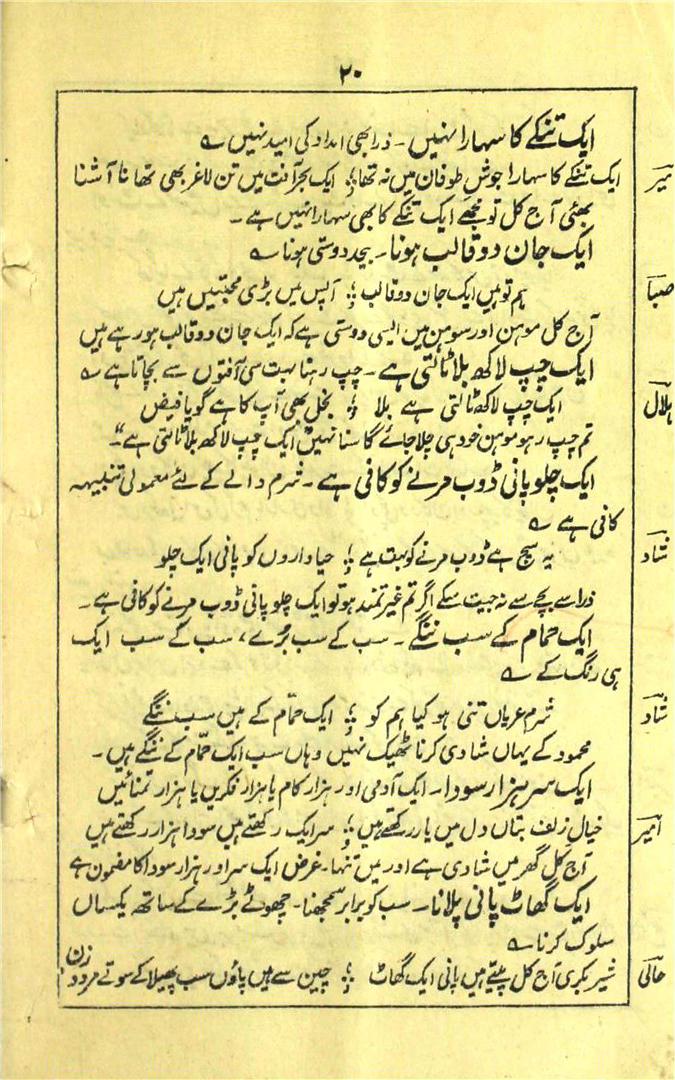 ۲۰
ایک تنکے کا سہارا نہیں ۔ ذرا بھی امداد کی امید نہیں ؎
میر ایک تنکے کا سہارا جوشِ طوفان میں نہ تھا ؛ ایک بحرِ آفت میں تن لاغر بھی تھا نا آشنا
بھئی آج کل تو مجھے ایک تنکے کا بھی سہارا نہیں ہے ۔
ایک جان دو قالب ہونا ۔ بیحد دوستی ہونا ؎
صبا ہم تو ہیں ایک جان دو قالب ؛ آپس میں بڑی محبتیں ہیں
آج کل موہن اور سوہن میں ایسی دوستی ہے کہ ایک جان دو قالب ہو رہے ہیں
ایک چپ لاکھ بلا ٹالتی ہے ۔ چپ رہنا بہت سی آفتوں سے بچاتا ہے ؎
ہلال ایک چپ لاکھ ٹالتی ہے بلا ؛ بخل بھی آپ کا ہے گویا فیض
تم چپ رہو موہن خود ہی چلا جائے گا سنا نہیں "ایک چپ لاکھ بلا ٹالتی ہے" ۔
ایک چلو پانی ڈوب مرنے کو کافی ہے ۔ شرم والے کے لئے معمولی تنبیہہ
کافی ہے ؎
شاد یہ سچ ہے ڈوب مرنے کو بہت ہے ؛ حیا داروں کو پانی ایک چلو
ذرا سے بچے سے نہ جیت سکے اگر تم غیرتمند ہو تو ایک چلو پانی ڈوب مرنے کو کافی ہے ۔
ایک حمام کے سب ننگے ۔ سب کے سب بُرے ، سب کے سب ایک
ہی رنگ کے ؎
شاد شرم عریاں تنی ہو کیا ہم کو ؛ ایک حمّام کے ہیں سب ننگے
محمود کے یہاں شادی کرنا ٹھیک نہیں وہاں سب ایک حمّام کے ننگے ہیں ۔
ایک سر ہزار سودا ۔ ایک آدمی اور ہزار کام یا ہزار فکریں یا ہزار تمنائیں
امیر خیالِ زلف بتاں دل میں یار رکھتے ہیں ؛ سر ایک رکھتے ہیں سودا ہزار رکھتے ہیں
آج کل گھر میں شادی ہے اور میں تنہا ۔ غرض ایک سر اور ہزار سودا کا مضمون ہے
ایک گھاٹ پانی پلانا ۔ سب کو برابر سمجھنا ۔ چھوٹے بڑے کے ساتھ یکساں
سلوک کرنا ؎
حالی شیر بکری آج کل پیتے ہیں پانی ایک گھاٹ ؛ چین سے ہیں پاؤں سب پھیلا کے سوتے مرد و زن